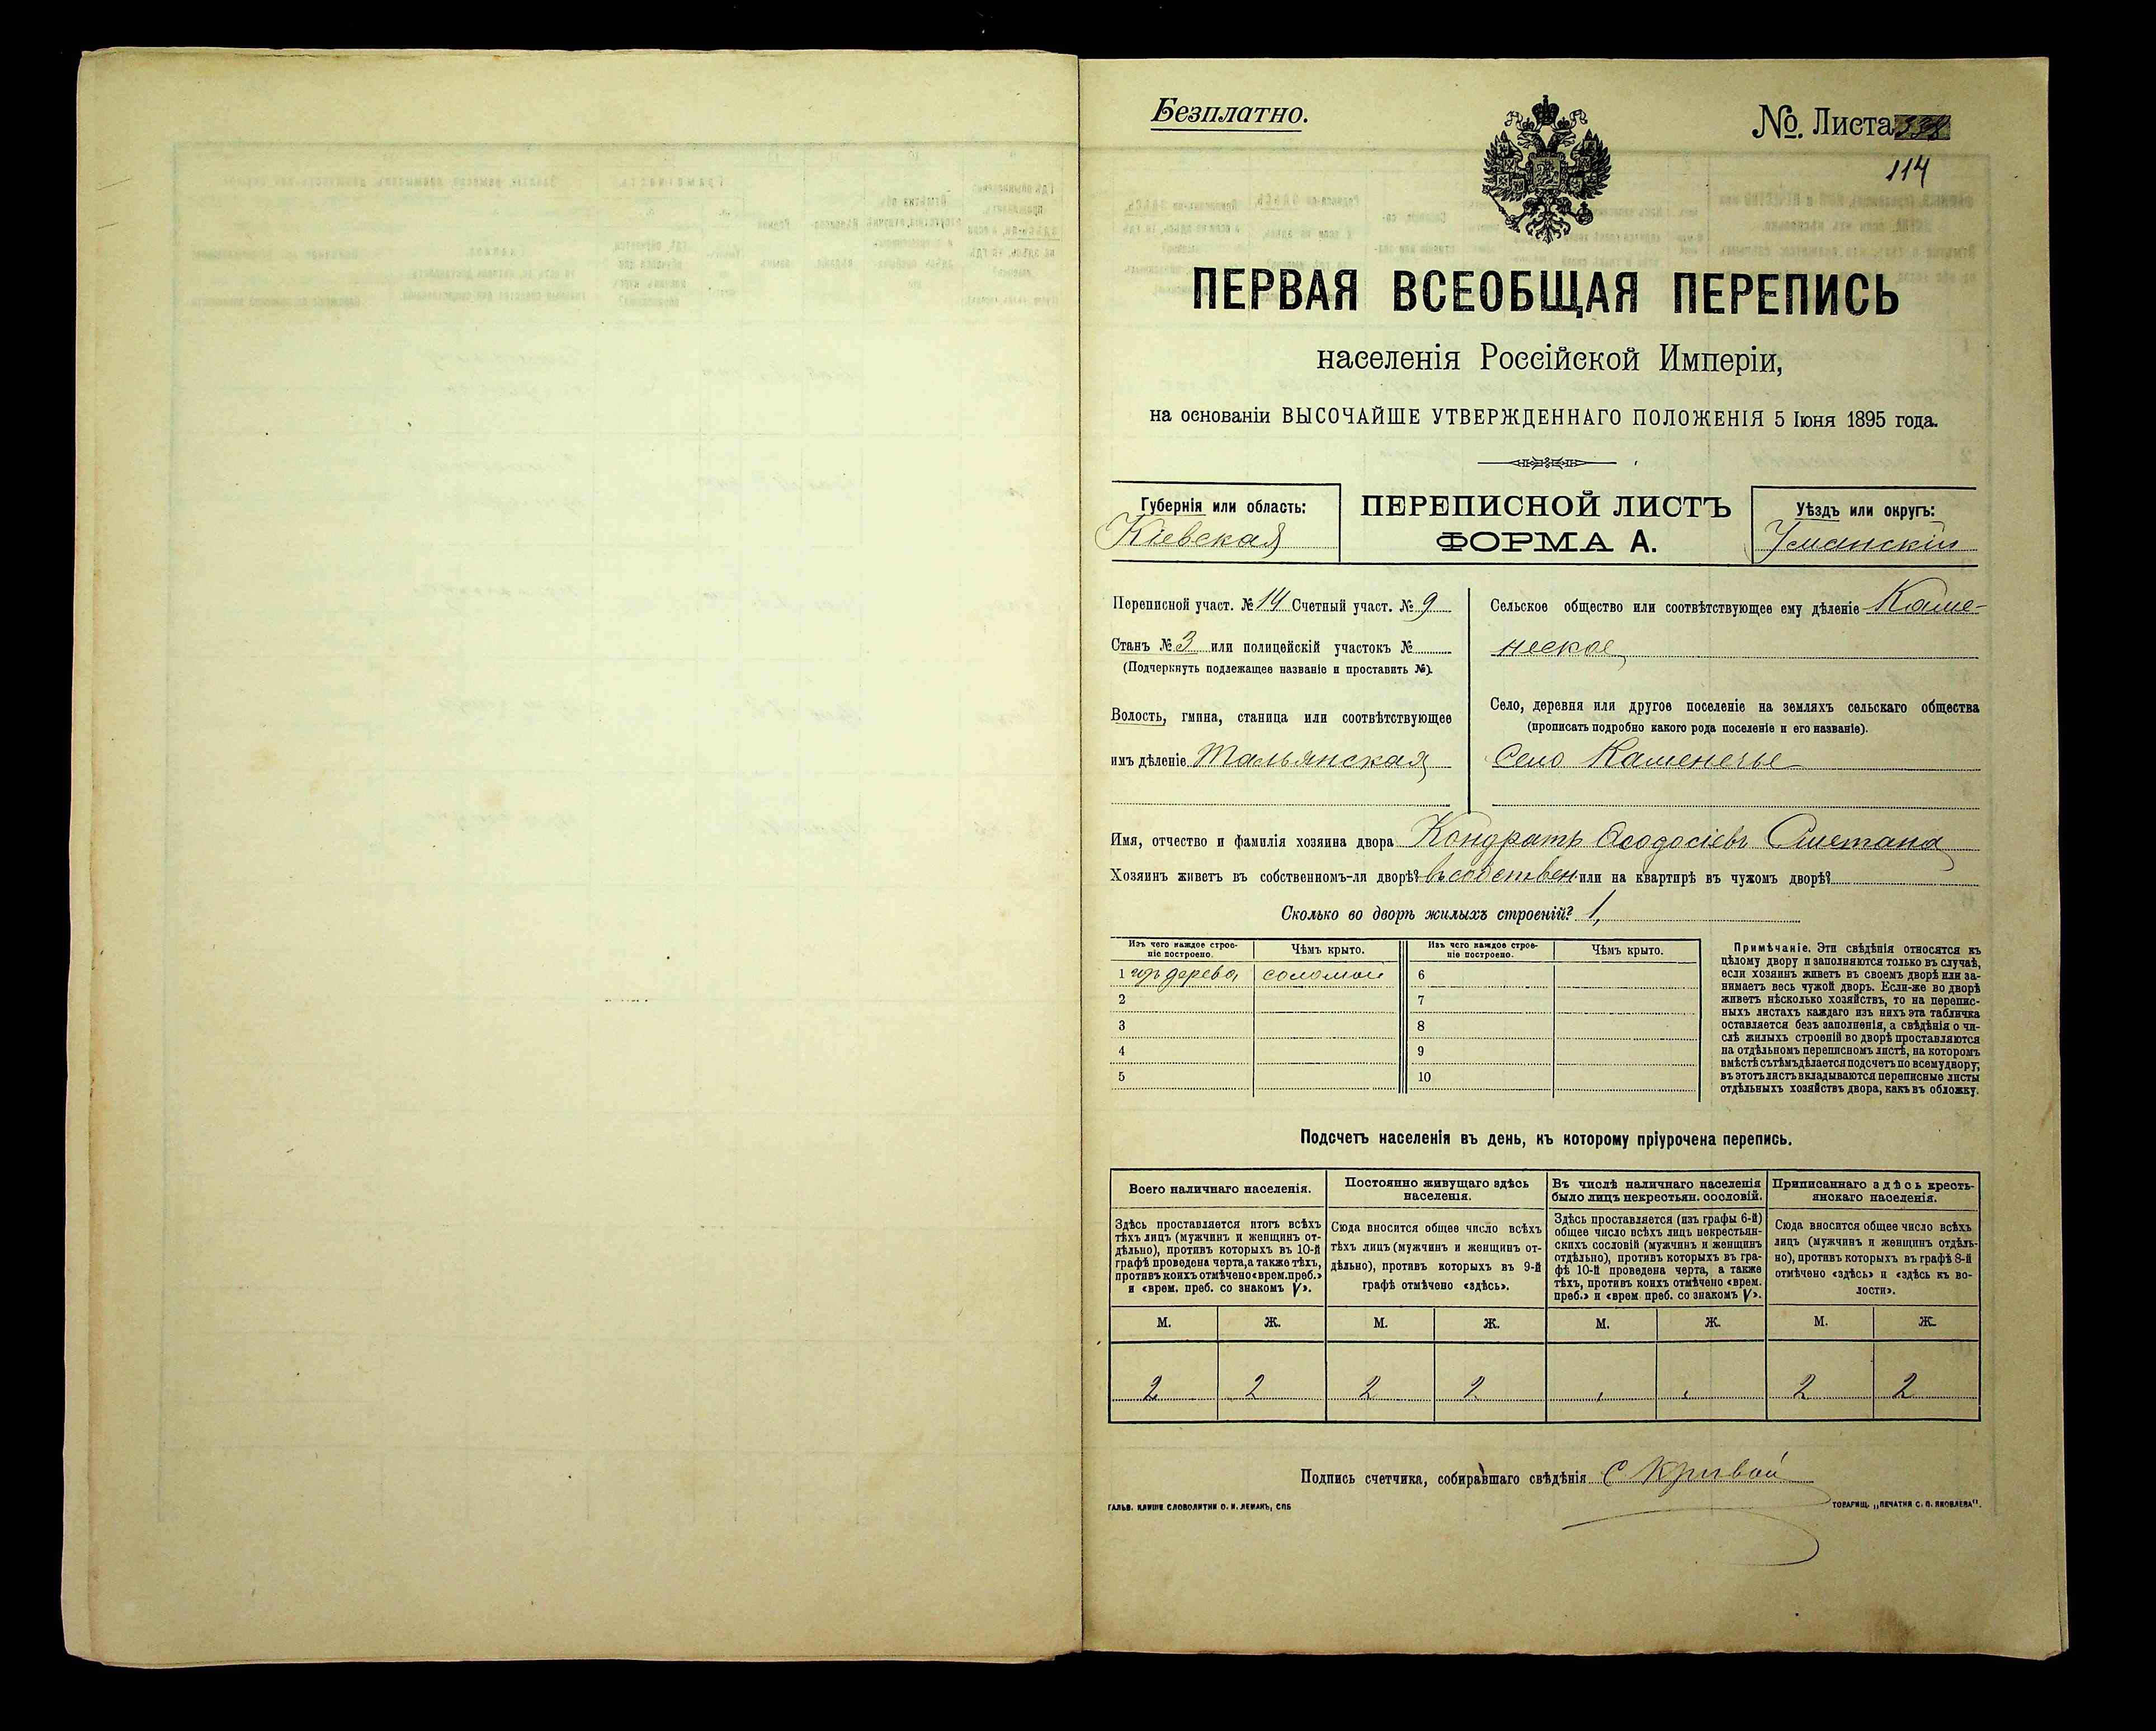 Безплатно.
№. Листа 338
114
ПЕРВАЯ ВСЕОБЩАЯ ПЕРЕПИСЬ
населенія Россійской Имперіи,
на основаніи ВЫСОЧАЙШЕ УТВЕРЖДЕННАГО ПОЛОЖЕНІЯ 5 Іюня 1895 года.
Губернія или область:
Кіевская
ПЕРЕПИСНОЙ ЛИСТЪ
ФОРМА А.
Уѣздъ или округъ:
Уманскій
Переписной участ. № 14 Счетный участ. № 9
Станъ № 3 или полицейскій участокъ №
(Подчеркнуть подлежащее названіе и проставить №).
Волость, гмина, станица или соотвѣтствующее
имъ дѣленіе Тальянская
Сельское общество или соотвѣтствующее ему дѣленіе Каме-
неское
Село, деревня или другое поселеніе на земляхъ сельскаго общества
(прописать подробно какого рода поселеніе и его названіе).
Село Каменечье
Имя, отчество и фамилія хозяина двора Кондратъ Ѳеодосіевъ Сметана
Хозяинъ живетъ въ собственномъ-ли дворѣ? въ собствен или на квартирѣ въ чужомъ дворѣ?
Сколько во дворѣ жилыхъ строеній? 1,
Изъ чего каждое строе-
ніе построено.
Чѣмъ крыто.
Изъ чего каждое строе-
ніе построено.
Чѣмъ крыто.
1 изъ дерева соломой 6
2 7
3 8
4 9
5 10
Примѣчаніе. Эти свѣдѣнія относятся къ
цѣлому двору и заполняются только въ случаѣ,
если хозяинъ живетъ въ своемъ дворѣ или за-
нимаетъ весь чужой дворъ. Если-же во дворѣ
живетъ нѣсколько хозяйствъ, то на перепис-
ныхъ листахъ каждаго изъ нихъ эта табличка
оставляется безъ заполненія, а свѣдѣнія о чи-
слѣ жилыхъ строеній во дворѣ проставляются
на отдѣльномъ переписномъ листѣ, на которомъ
вмѣстѣ съ тѣмъ дѣлается подсчетъ по всему двору;
въ этотъ листъ вкладываются переписные листы
отдѣльныхъ хозяйствъ двора, какъ въ обложку.
Подсчетъ населенія въ день, къ которому пріурочена перепись.
Всего наличнаго населенія.
Здѣсь проставляется итогъ всѣхъ
тѣхъ лицъ (мужчинъ и женщинъ от-
дѣльно), противъ которыхъ въ 10-й
графѣ проведена черта, а также тѣхъ,
противъ коихъ отмѣчено «врем. преб.»
и «врем. преб. со знакомъ V».
Постоянно живущаго здѣсь
населенія.
Сюда вносится общее число всѣхъ
тѣхъ лицъ (мужчинъ и женщинъ от-
дѣльно), противъ которыхъ въ 9-й
графѣ отмѣчено «здѣсь».
Въ числѣ наличнаго населенія
было лицъ некрестьян. сословій.
Здѣсь проставляется (изъ графы 6-й)
общее число всѣхъ лицъ некрестьян-
скихъ сословій (мужчинъ и женщинъ
отдѣльно), противъ которыхъ въ гра-
фѣ 10-й проведена черта, а также
тѣхъ, противъ коихъ отмѣчено «врем.
преб.» и «врем преб. со знакомъ V».
Приписаннаго здѣсь кресть-
янскаго населенія.
Сюда вносится общее число всѣхъ
лицъ (мужчинъ и женщинъ отдѣль-
но), противъ которыхъ въ графѣ 8-й
отмѣчено «здѣсь» и «здѣсь къ во-
лости».
М. Ж. М. Ж. М. Ж. М. Ж.
2 2 2 2 , , 2 2
Подпись счетчика, собиравшаго свѣдѣнія С Кривой
ГАЛЬВ. КЛИШЕ СЛОВОЛИТНИ О. И. ЛЕМАНЪ, СПБ
ТОВАРИЩ. „ПЕЧАТНЯ С. П. ЯКОВЛЕВА“.